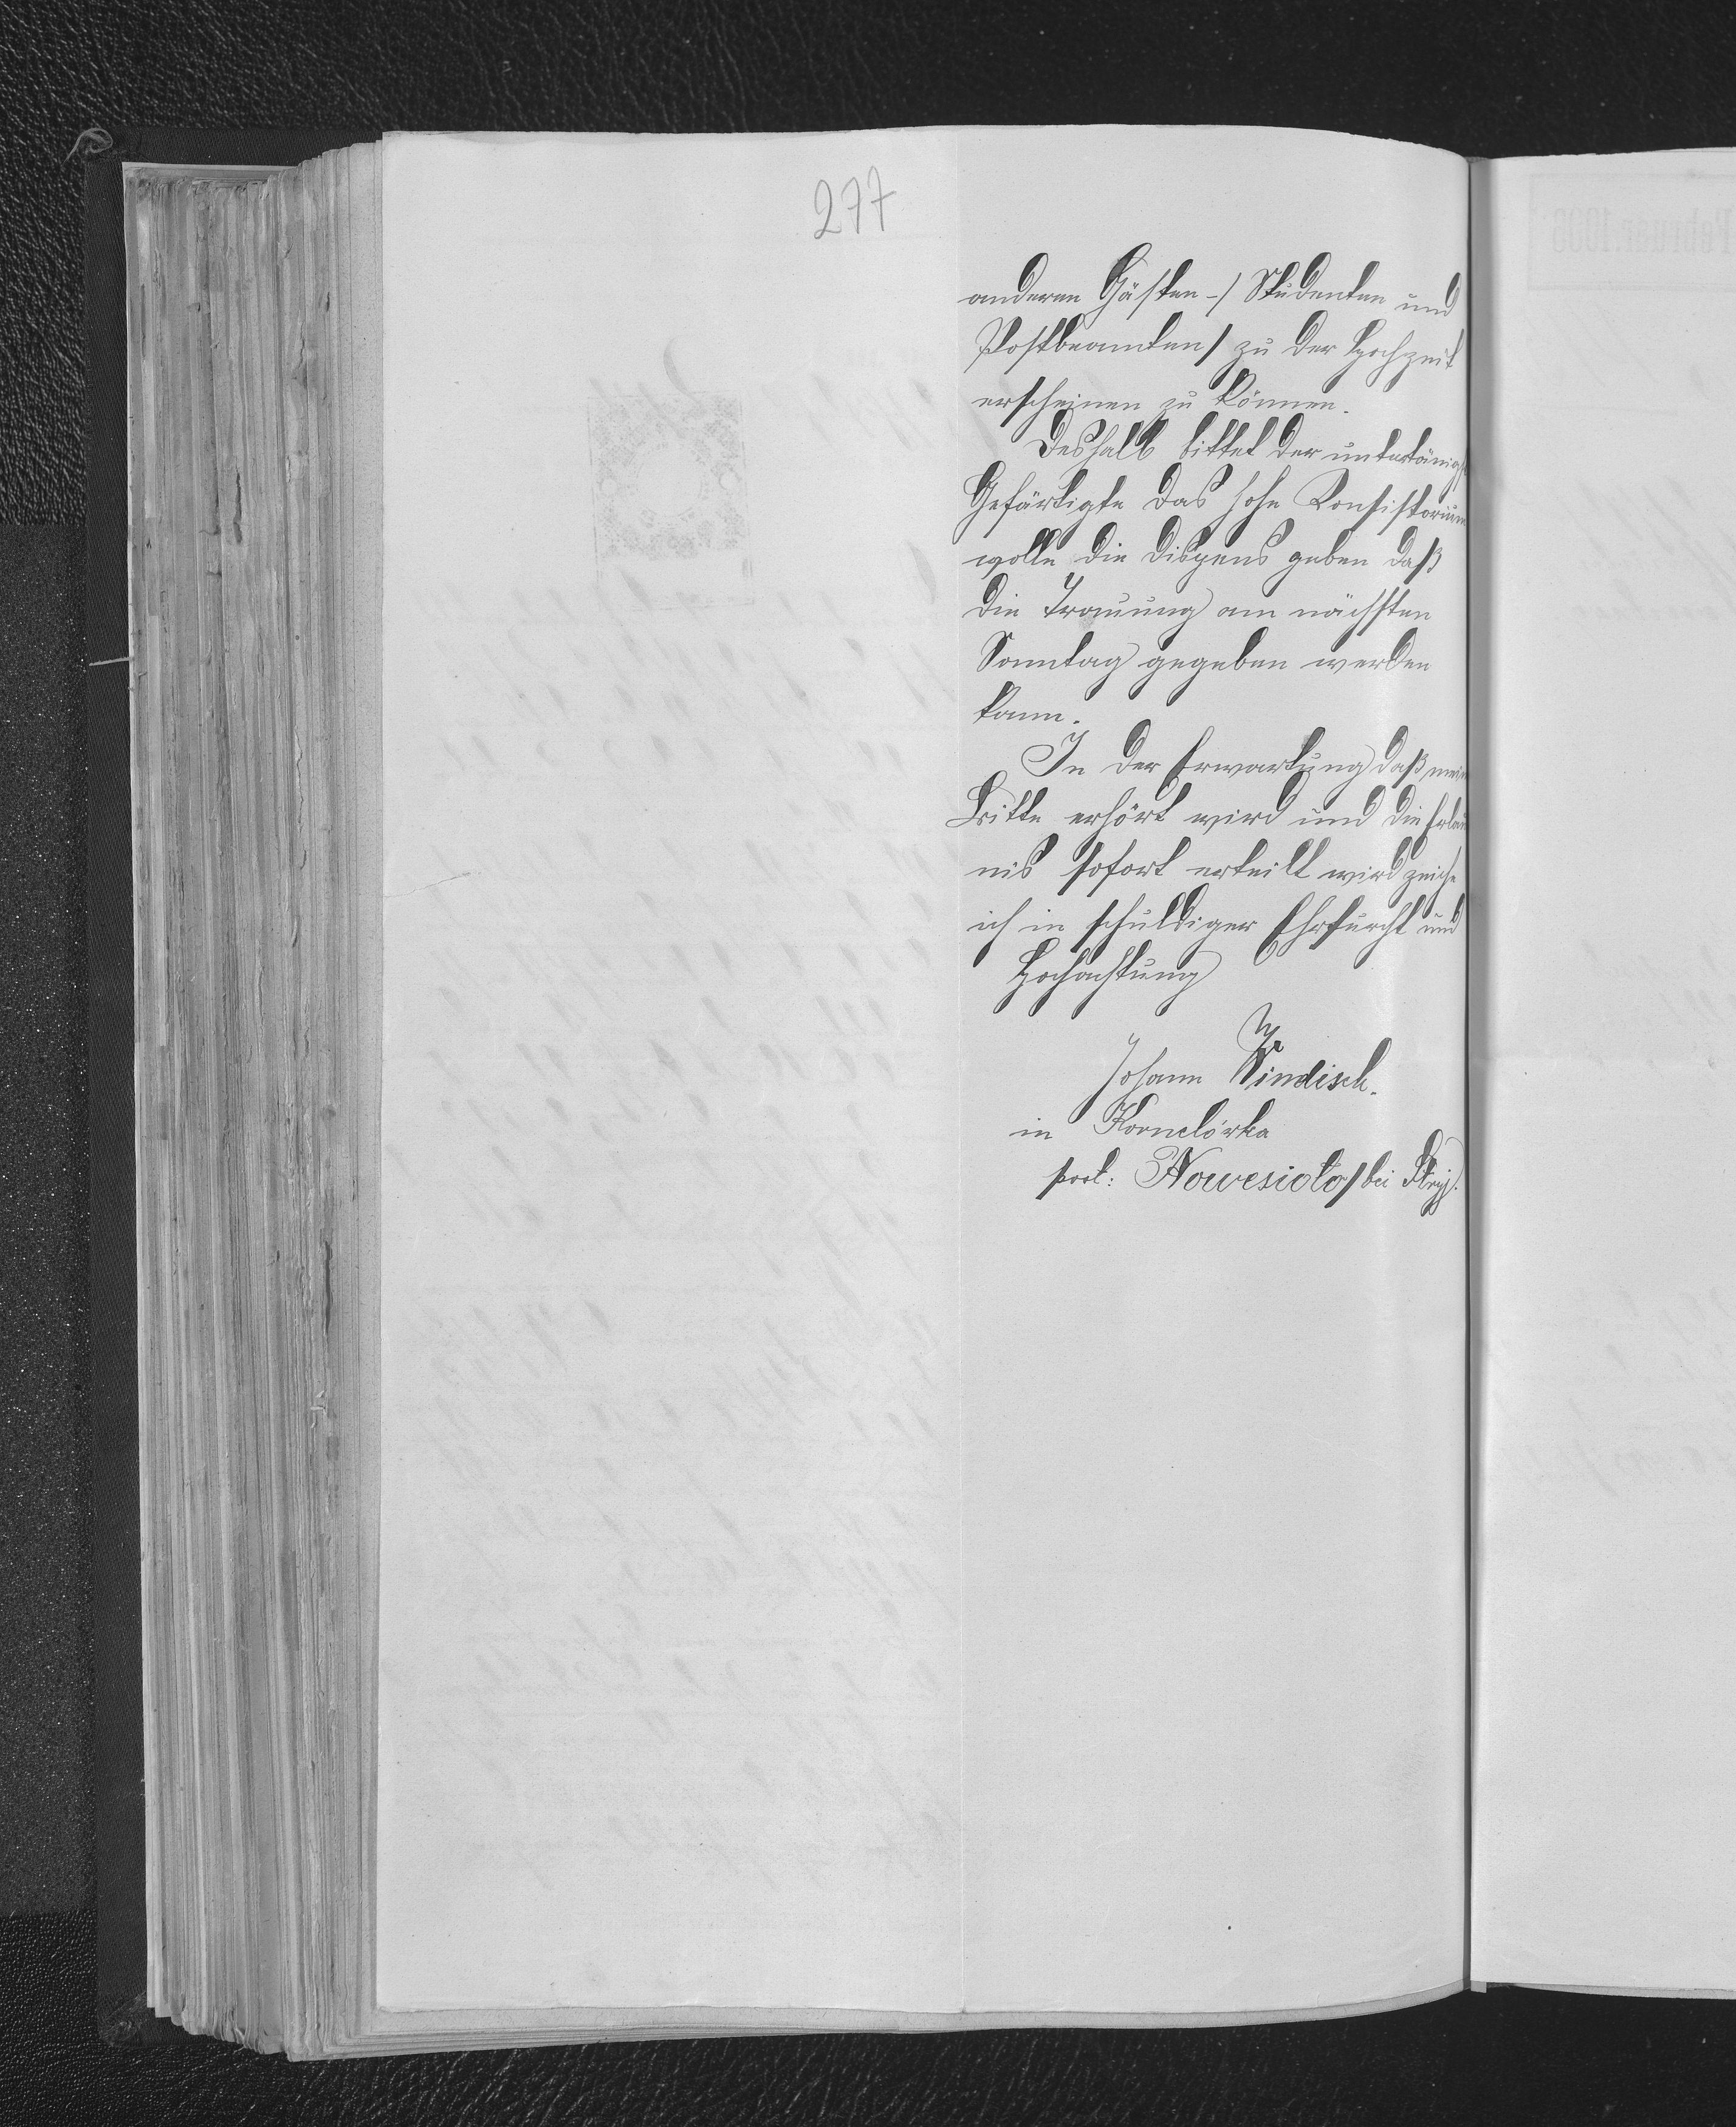 277
anderen Gästen -/ Studenten und
Postbeamten/ zu der Hochzeit
erscheinen zu können.
Deshalb bittet der untertänigst
Gefärtigte das hohe Konsistorium
wolle die Dispens geben daß
die Trauung am nächsten
Sonntag gegeben werden
kann.
In der Erwartung daß meine
Bitte erhört wird und die Erlau
nis sofort erteilt wird zeichne
ich in schuldiger Ehrfurcht und
Hochachtung
Johann Windisch.
in Kornelówka
post: Nowesioło/ bei Stryj.